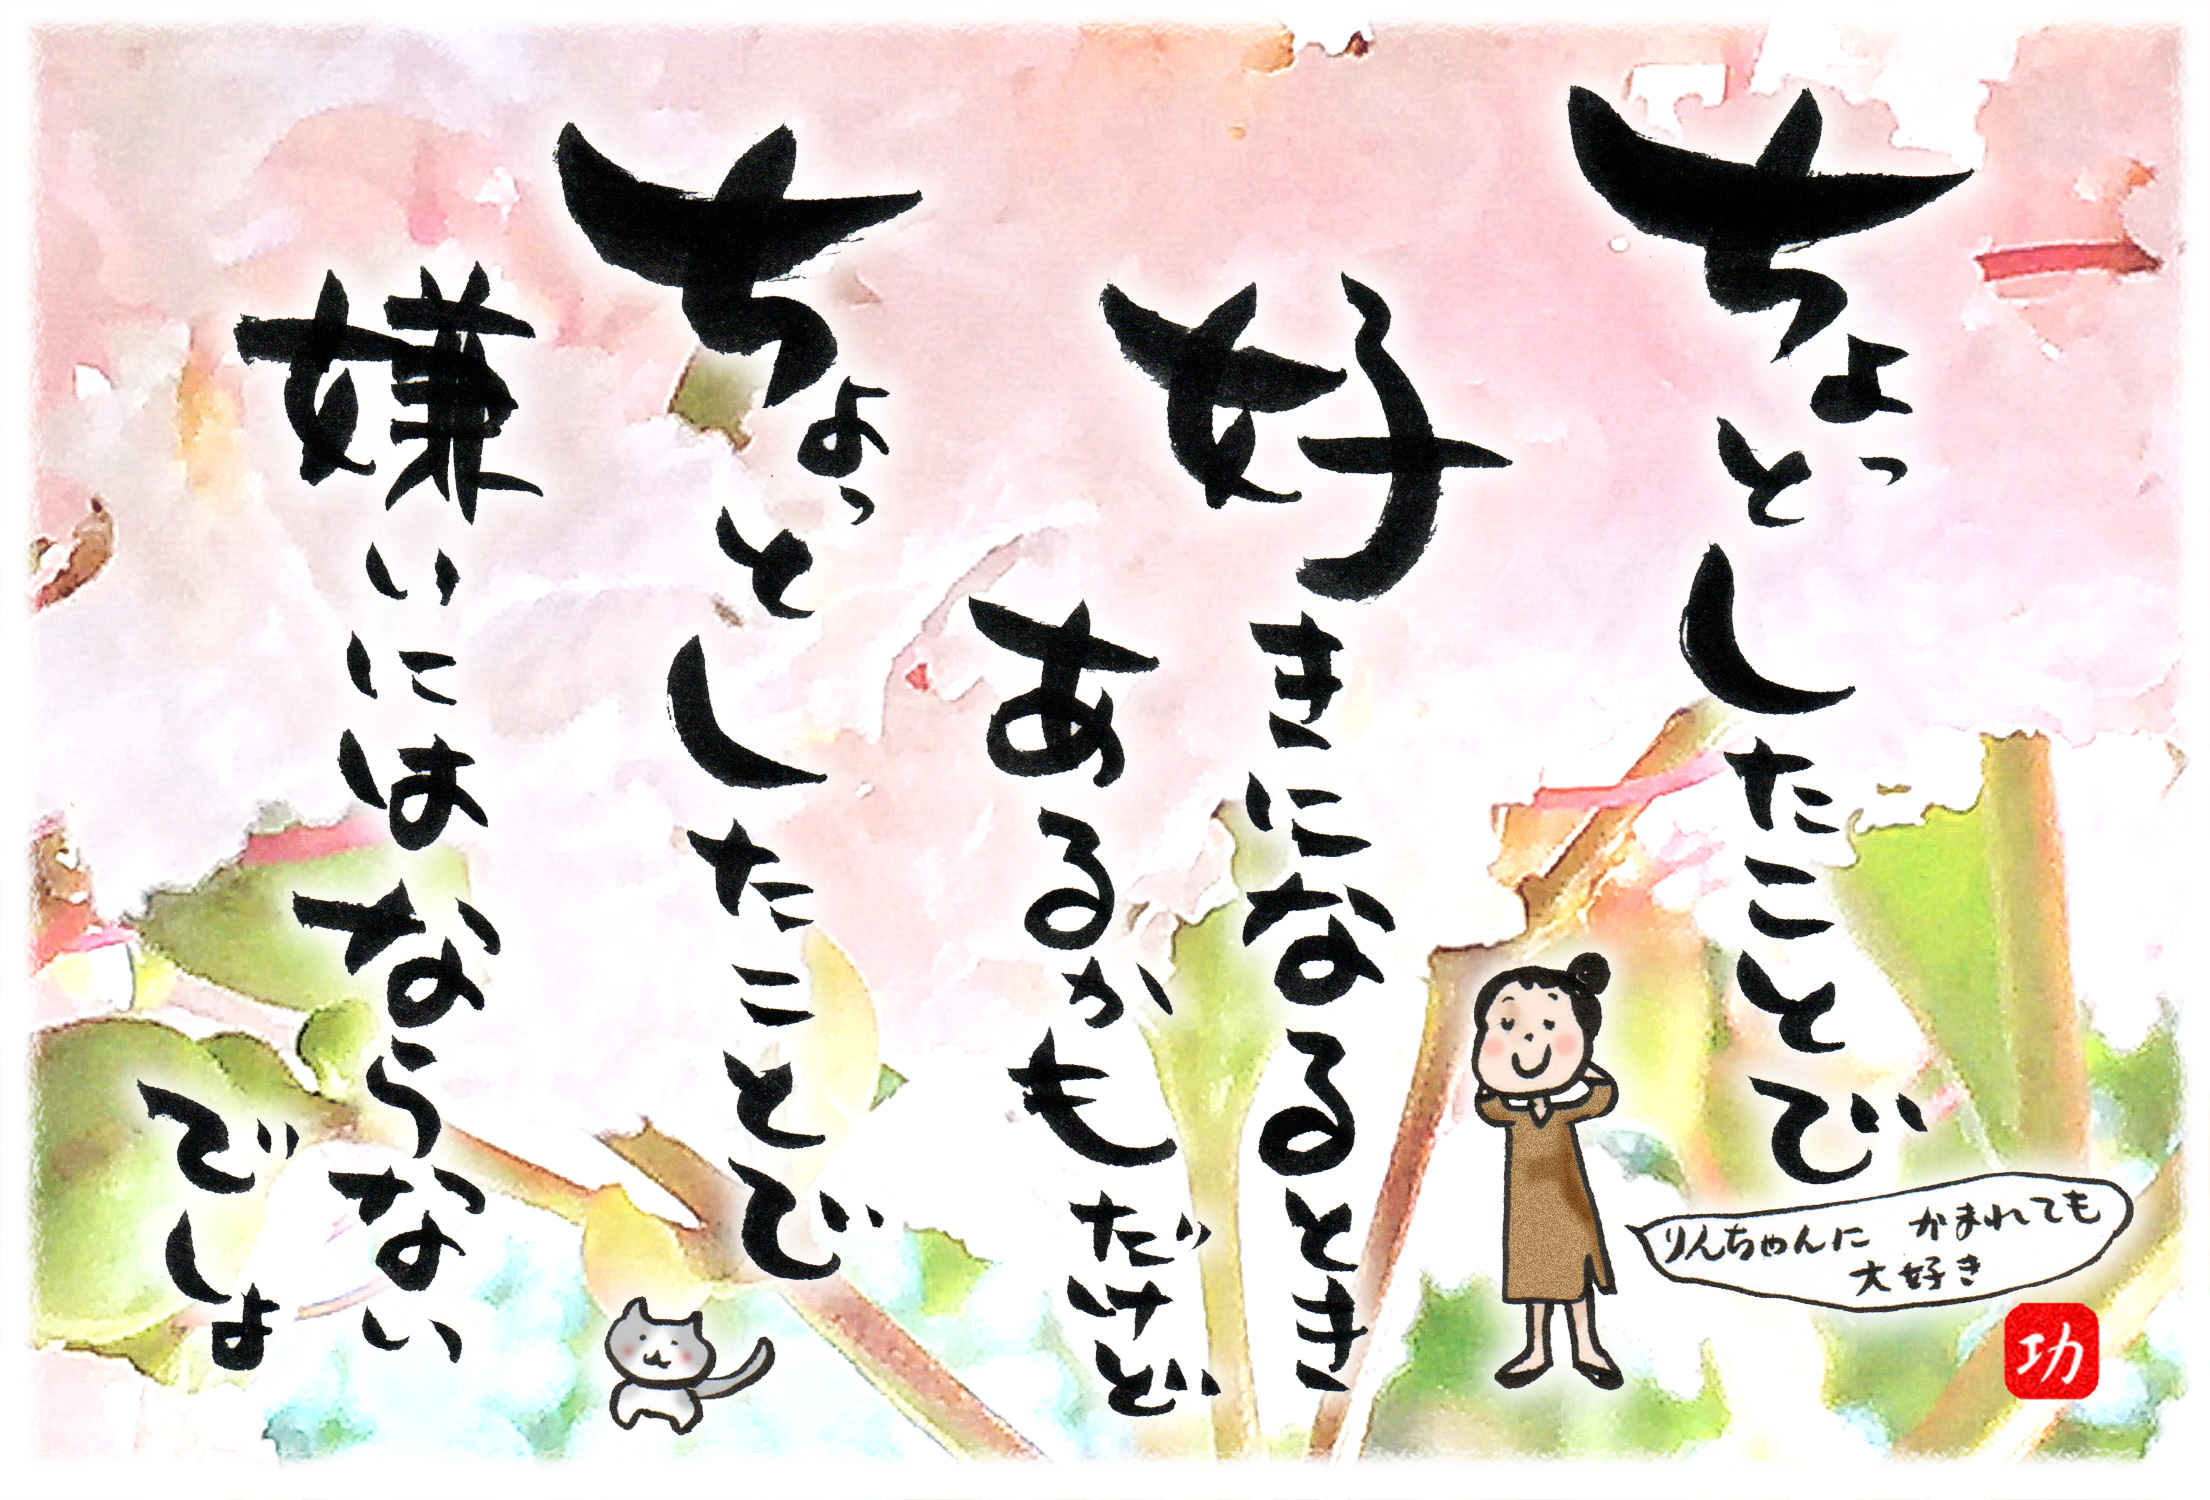 ちょっとしたことで
好きになるとき
あるかもだけど
ちょっとしたことで
嫌いにはならない
でしょ
りんちゃんに かまれても
大好き
功